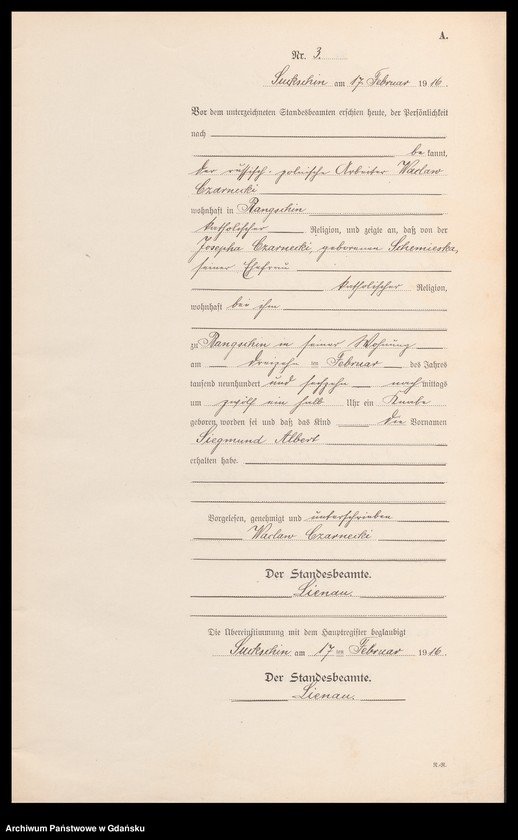 A.
Nr. 3.
Suckschin am 17. Februar 1916.
Vor dem unterzeichneten Standesbeamten erschien heute, der Persönlichkeit
nach
be kannt,
der russisch-polnische Arbeiter Waclaw
Czarnecki
wohnhaft in Rangschin
katholischer Religion, und zeigte an, daß von der
Josepha Czarnecki, geborenen
seiner Ehefrau
katholischer Religion,
wohnhaft bei ihm
zu Rangschin in seiner Wohnung
am dreizehn ten Februar des Jahres
tausend neunhundert und sechzehn nach mittags
um zwölf ein halb Uhr ein Knabe
geboren worden sei und daß das Kind die Vornamen
Siegmund Albert
erhalten habe.
Vorgelesen, genehmigt und unterschrieben
Waclaw Czarnecki
Der Standesbeamte.
Lienau.
Die Übereinstimmung mit dem Hauptregister beglaubigt
Suckschin am 17 ten Februar 1916.
Der Standesbeamte.
Lienau.
Archiwum Państwowe w Gdańsku